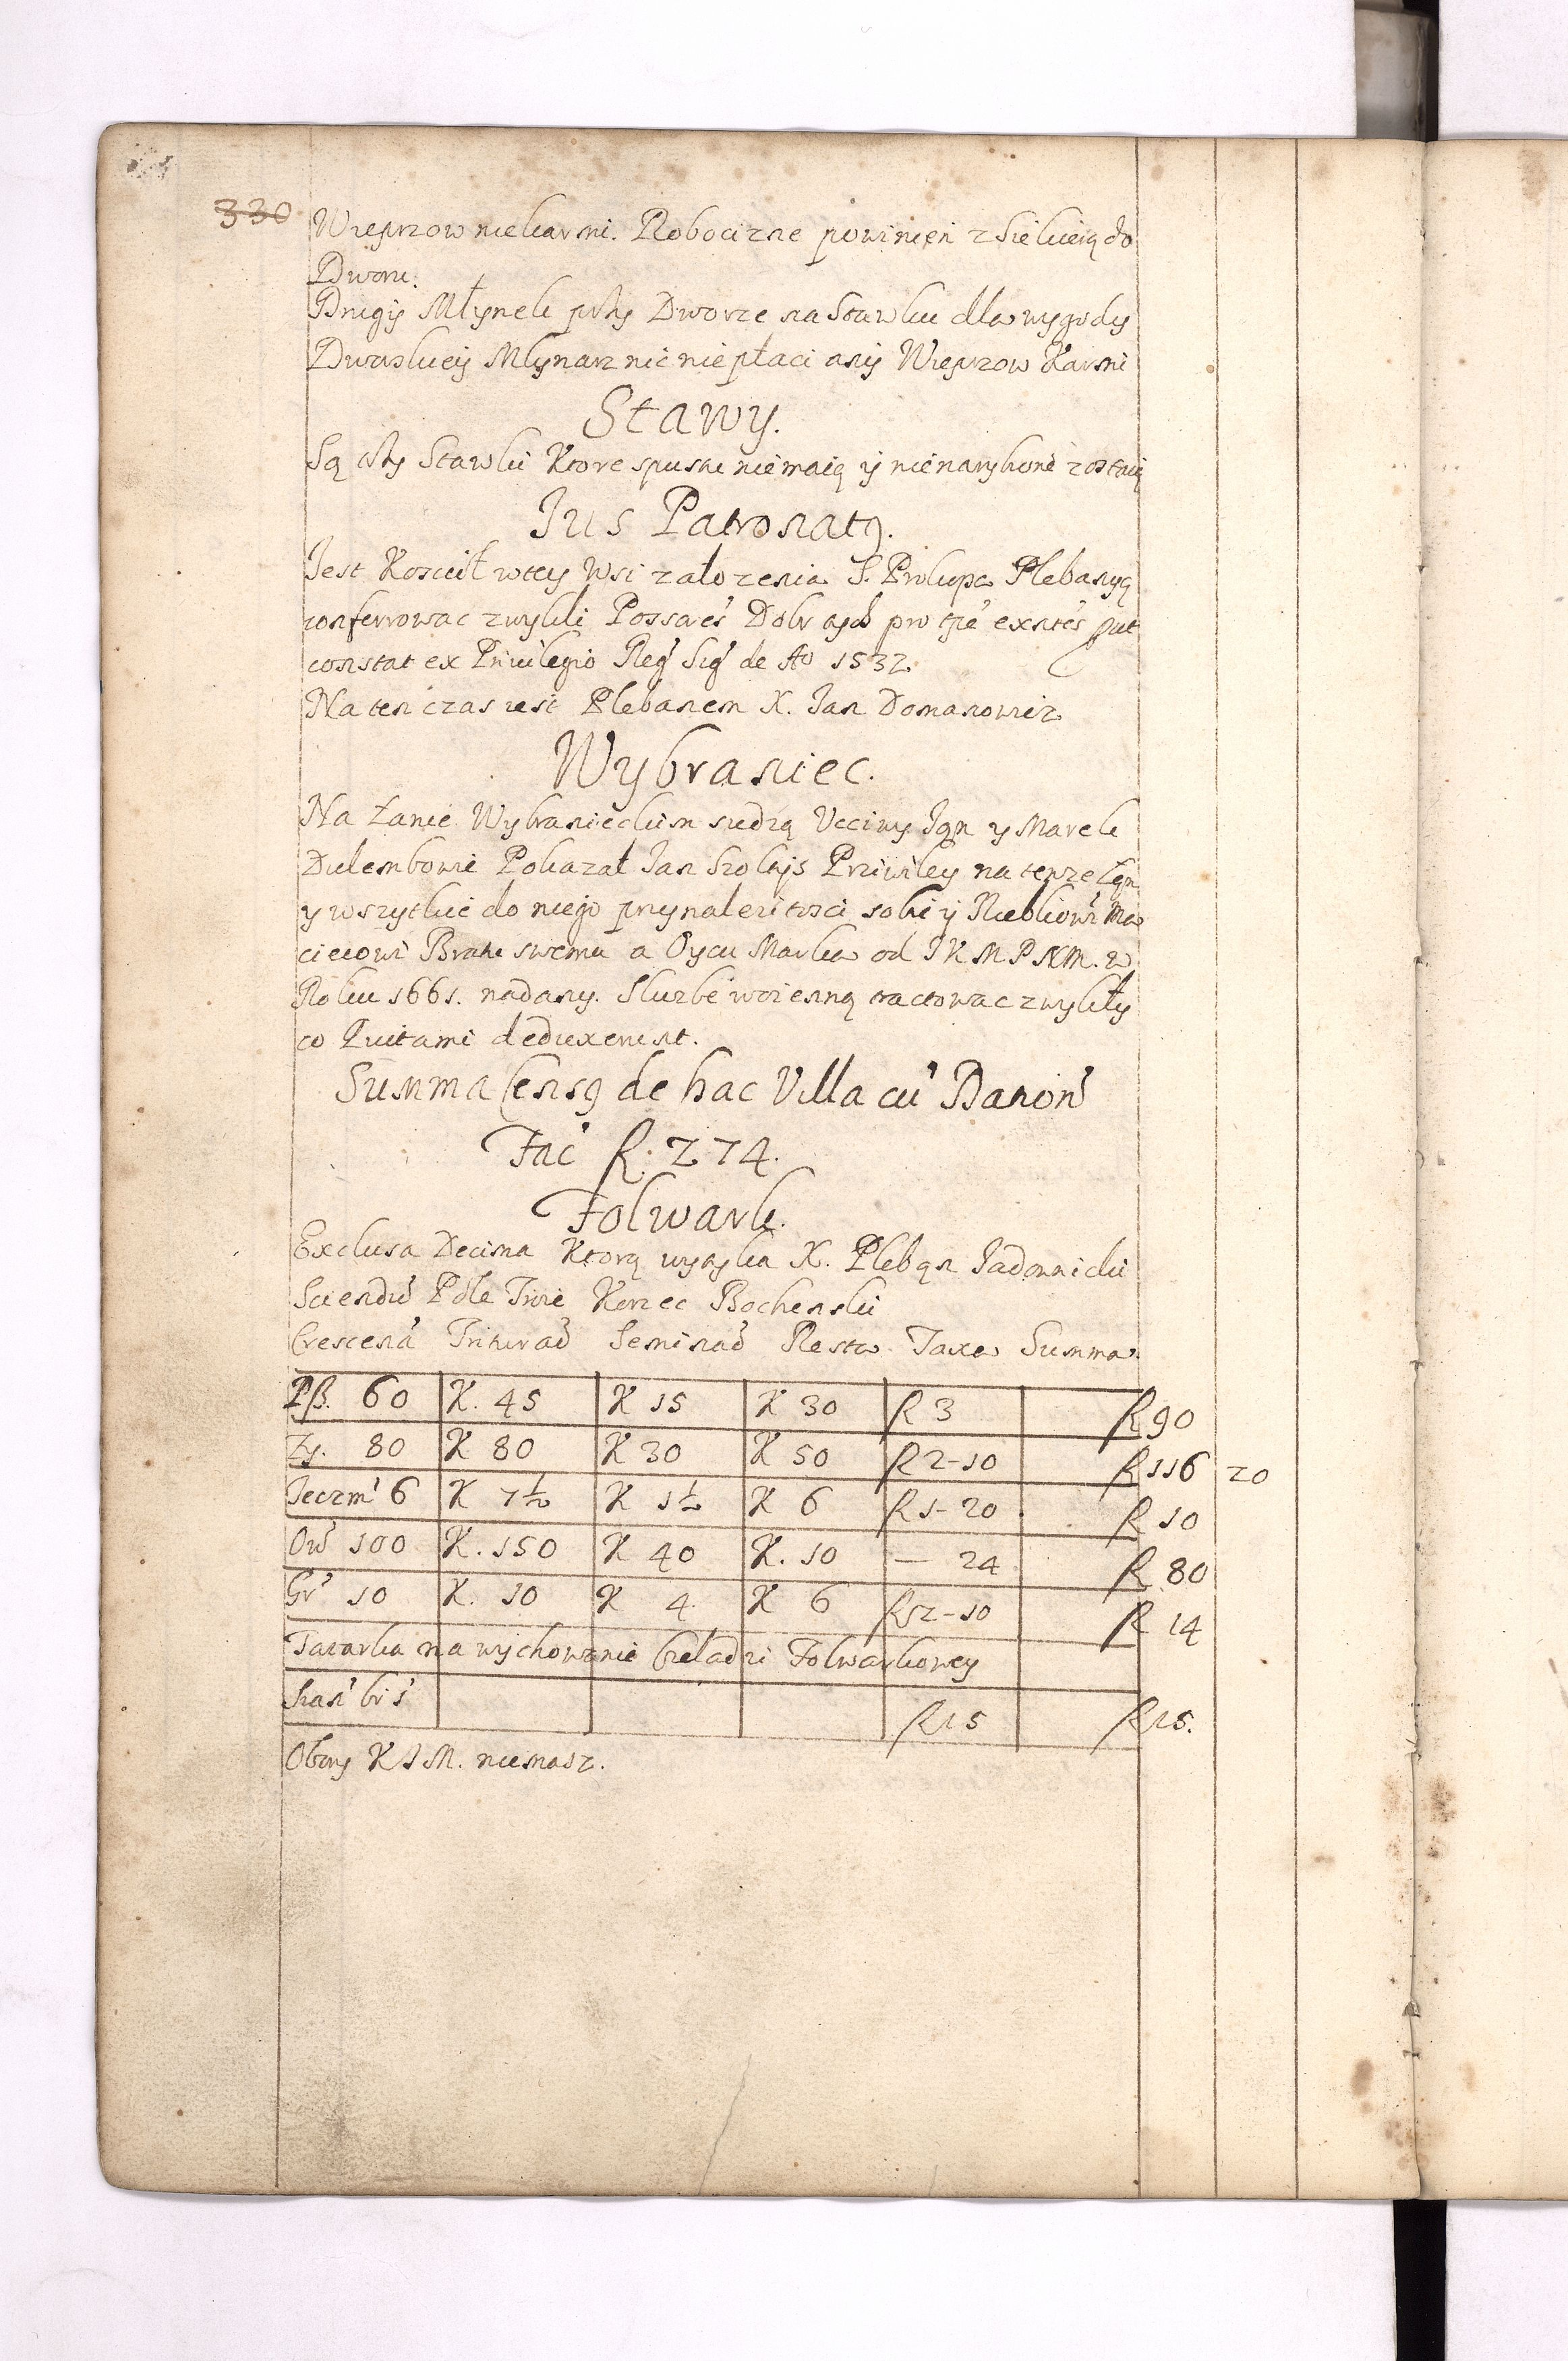 330
Wieprzow niekarmi. Robocizne powinien z Siekierą do
Dworu.
Drugi Młynek przy Dworze na Stawku dla wygody
Dworskiey Młynarz nic niepłaci any Wieprzow Karmi
Stawy.
Są trzy Stawki Ktore spustu niemaią y nienarybione zostaią
Jus Patronatq.
Jest Koscieł w tey Wsi załozenia S. Prokupa Plebanyą
conferrowac zwykli Possores Dobr tych pro tpe exntes put
constat ex Privilegio Reg Sig de Ao 1532
Na ten czas iest Plebanem X. Jan Domanowicz
Wybraniec.
Na Łanie Wybranieckim siedzą Ucciwy Jan y Marek
Dulembowie Pokazał Jan Szoltys Priwiley na tenze Łan
y wszytkie do niego przynalezitosci sobie y Maciejowi Bratu swemu a Oycu Marka od J K M P N M. w
Roku 1661. nadany. Sluzbe woienną tractowac zwykły
co Quitami deduxerunt.
Summa Censq de hac Villa cu Danion
Fac fl. 274.
Folwark.
Exclusa Decima Ktorą wytyka X. Pleban Jadownicki
Sciendu Pole Trire Korzec Bochenski
Crescena Triturao Seminao Resta Taxa Summa
Pß. 60 K. 45 K 15 K 30 fl 3 fl 90
Zy. 80 K 80 K 30 K 50 fl 2-10 fl 116 20
Jeczm 6 K 7½ K 1½ K 6 fl 1-20 fl 10
Ow 100 K. 150 K 40 K. 10 — 24 fl 80
Gr 10 K. 10 K 4 K 6 fl 2-10 fl 14
Tatarka na wychowanie Czeladzi Folwarkowey
fl 15 fl 15.
Obory K J M. niemasz.